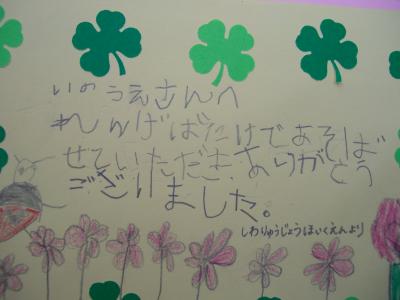 いのうえさんへ
れんげばたけであそば
せていただき、ありがとう
ございました。
しわりゅうじょうほいくえんより